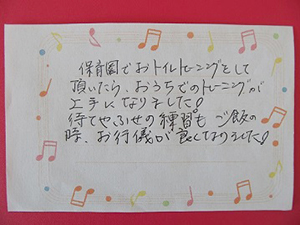 保育園でおトイレトレーニングをして
頂いたら、おうちでのトレーニングが
上手になりました!
待てやふせの練習も ご飯の
時、お行儀が良くなりました!